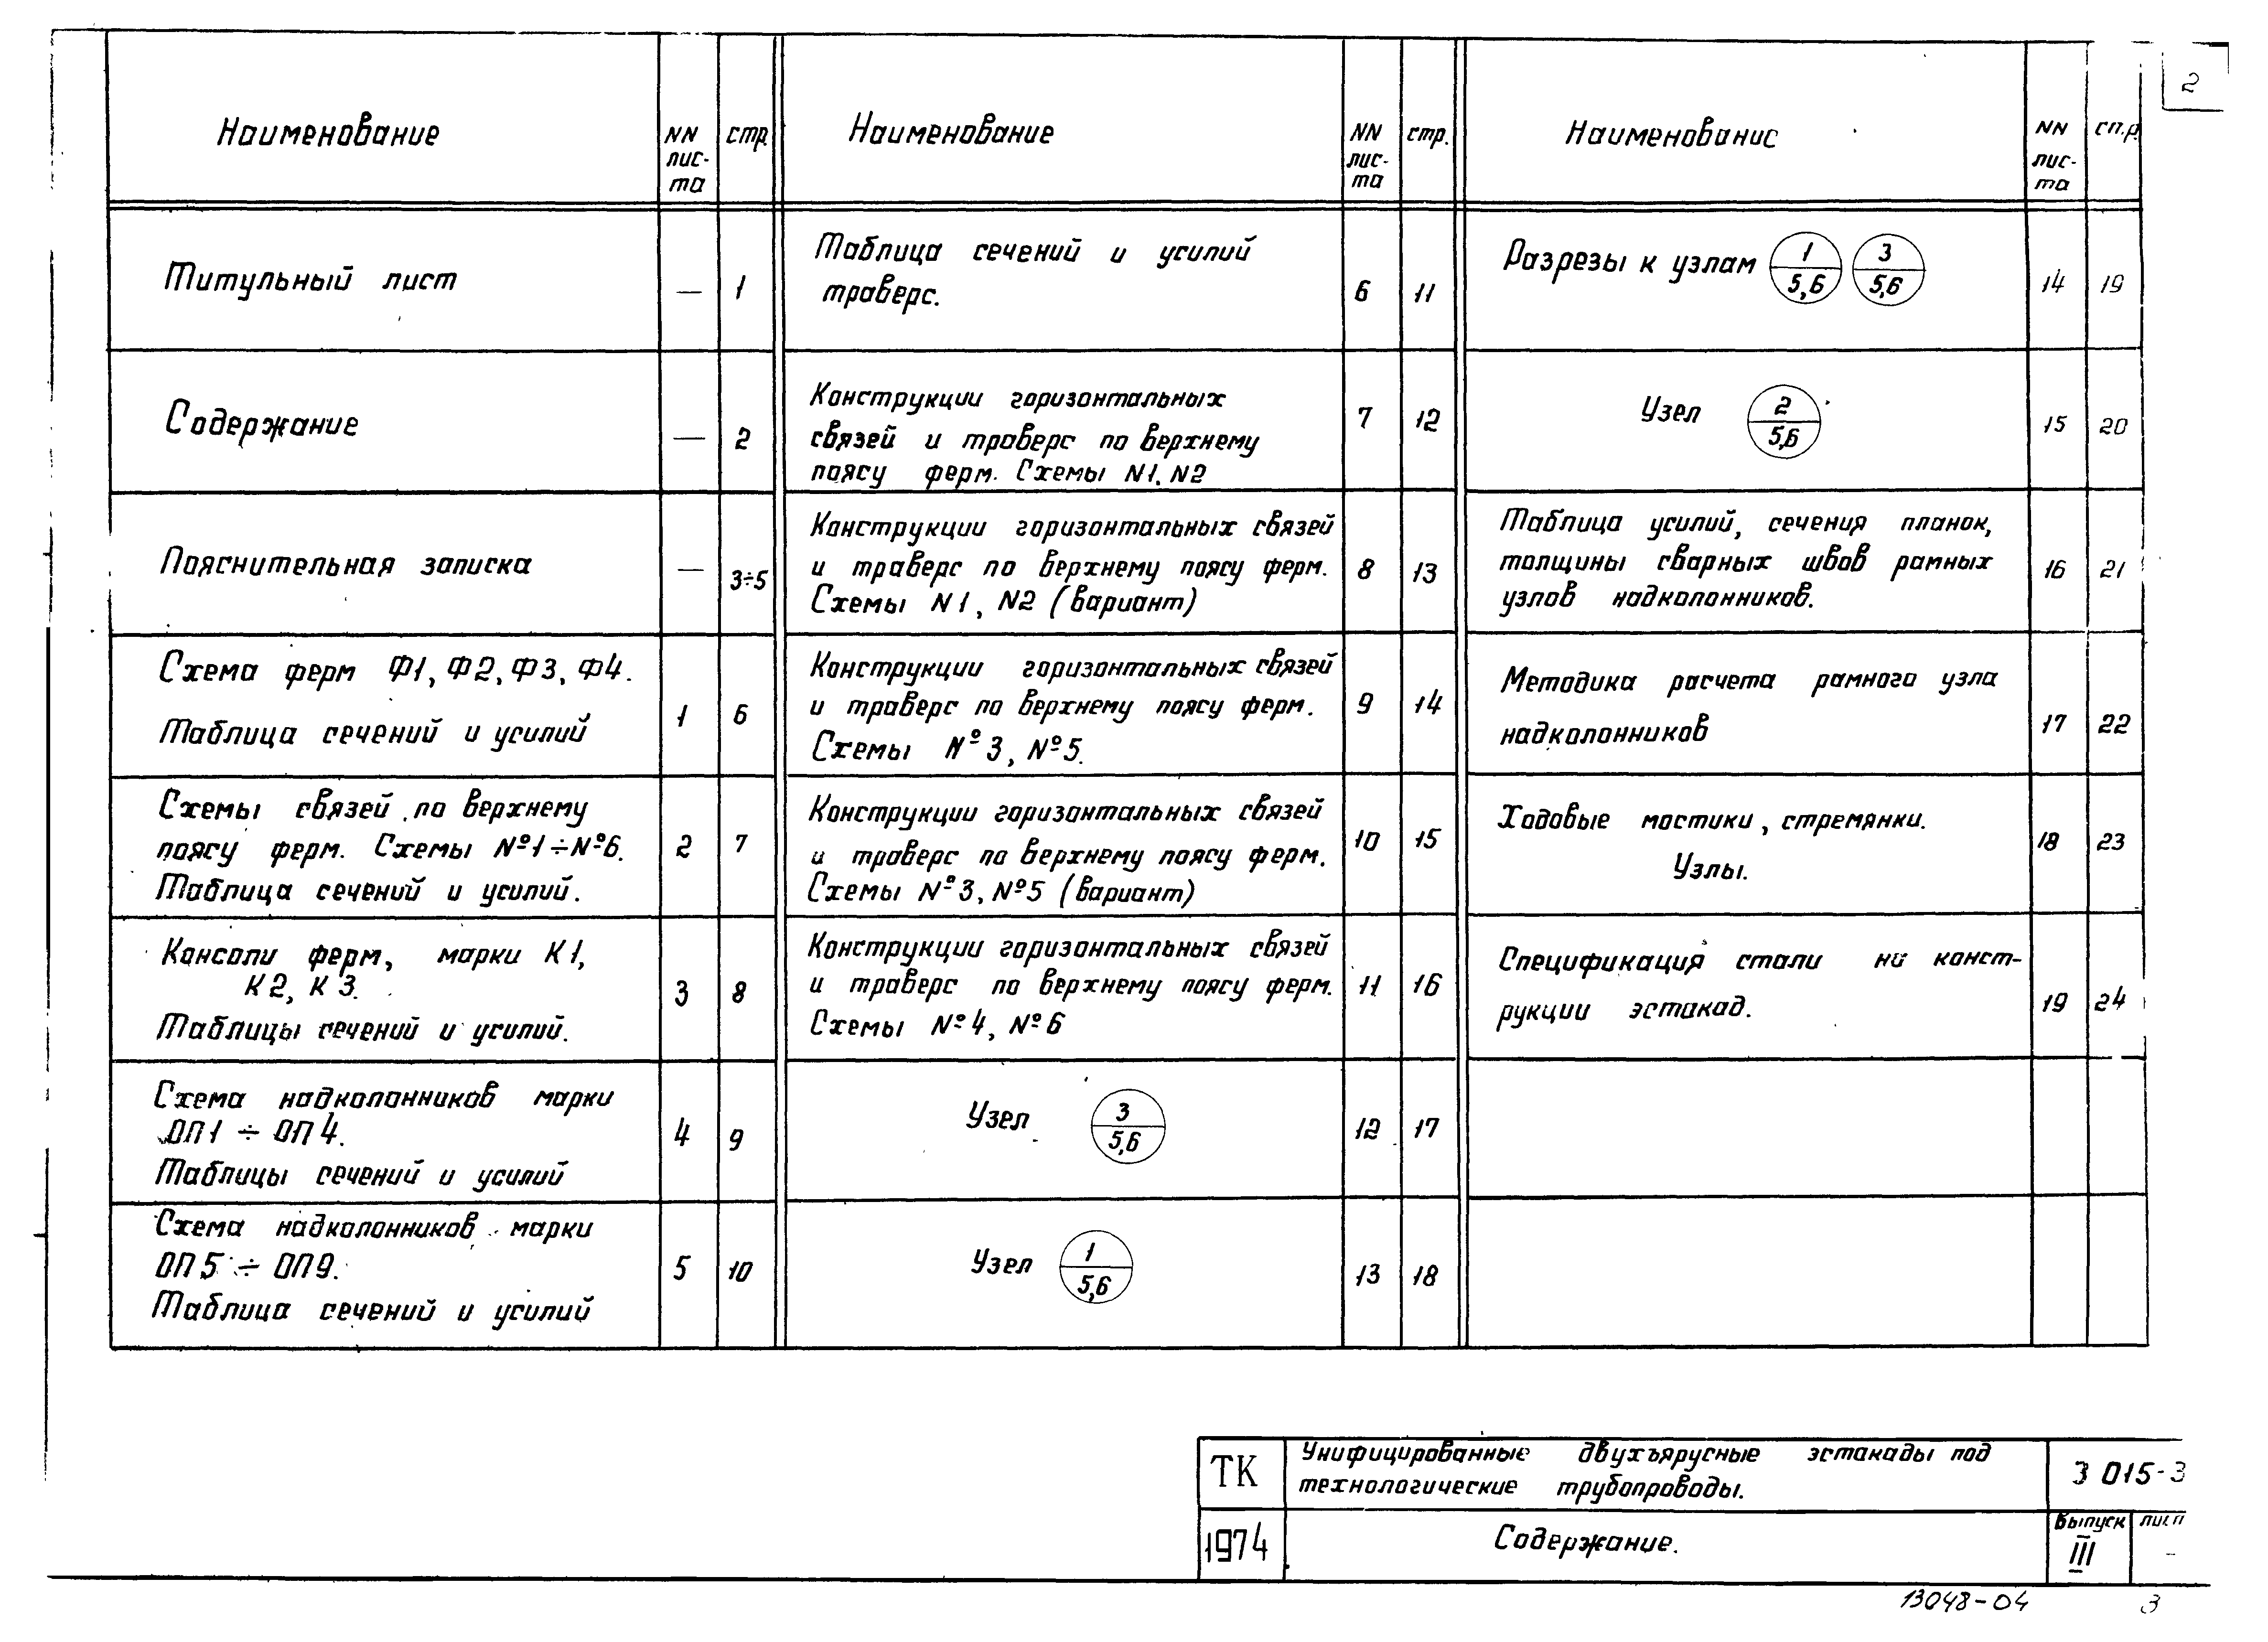 2
Наименование
NN
лис-
та
стр.
Титульный лист — 1
Содержание — 2
Пояснительная записка — 3÷5
Схема ферм Ф1, Ф2, Ф3, Ф4.
Таблица сечений и усилий
1 6
Схемы связей по верхнему
поясу ферм. Схемы №1÷№6.
Таблица сечений и усилий.
2 7
Консоли ферм, марки К1,
К2, К3.
Таблицы сечений и усилий.
3 8
Схема надколонников марки
ОП1 ÷ ОП4.
Таблицы сечений и усилий
4 9
Схема надколонников марки
ОП5 ÷ ОП9.
Таблица сечений и усилий
5 10
Наименование
NN
лис-
та
стр.
Таблица сечений и усилий
траверс.
6 11
Конструкции горизонтальных
связей и траверс по верхнему
поясу ферм. Схемы N1, N2
7 12
Конструкции горизонтальных связей
и траверс по верхнему поясу ферм.
Схемы N1, N2 (вариант)
8 13
Конструкции горизонтальных связей
и траверс по верхнему поясу ферм.
Схемы №3, №5.
9 14
Конструкции горизонтальных связей
и траверс по верхнему поясу ферм.
Схемы №3, №5 (вариант)
10 15
Конструкции горизонтальных связей
и траверс по верхнему поясу ферм.
Схемы №4, №6
11 16
Узел 3
5,6
12 17
Узел 1
5,6
13 18
Наименование
NN
лис-
та
стр.
Разрезы к узлам 1 3
5,6 5,6
14 19
Узел 2
5,6
15 20
Таблица усилий, сечения планок,
толщины сварных швов рамных
узлов надколонников.
16 21
Методика расчета рамного узла
надколонников
17 22
Ходовые мостики, стремянки.
Узлы.
18 23
Спецификация стали на конст-
рукции эстакад.
19 24
ТК
Унифицированные двухъярусные эстакады под
технологические трубопроводы.
3 015-3
1974
Содержание.
Выпуск
III
лист
-
13048-04 3